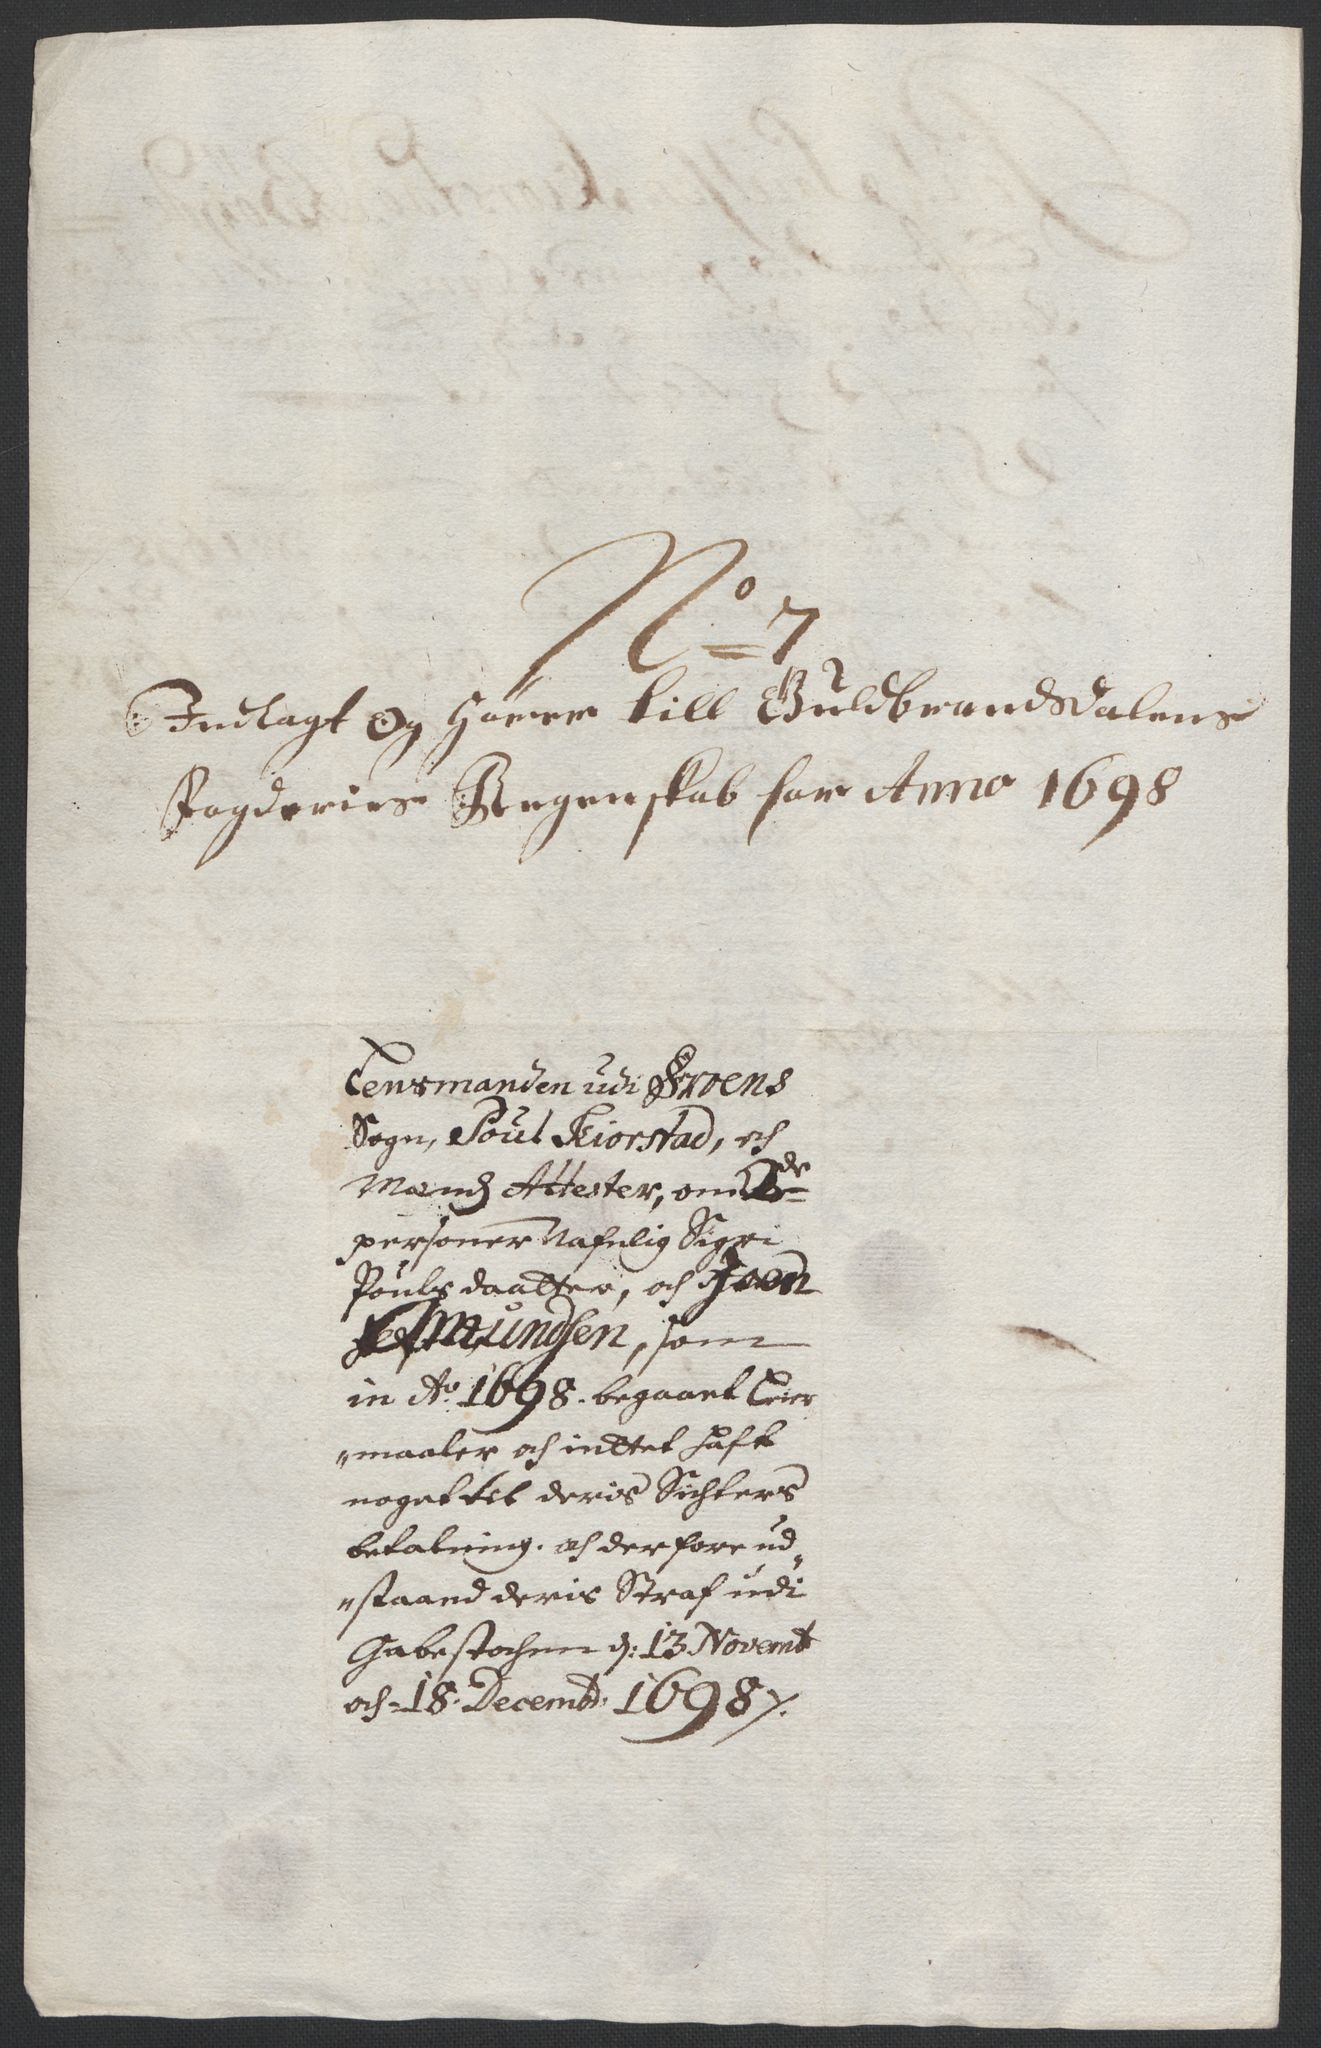 No 7
Indlagt og Hörer till Guldbrandsdalens
Fogderies Regenskab for Anno 1698
Lensmanden udi Froens
Sogn, Poul Kiorstad, och
Mends Attester, om 2de
personer Nafnlig Sigri
Pouls daatter, och Joen
Amundsen, som
in Ao 1698. begaaet Leier
"maaler och inttet haft
noget til deris Sichters
betalning. och derfore ud
"staaed deris Straf udi
Gabestochen d: 13 Novemb
och 18. Decemb: 1698 ./.